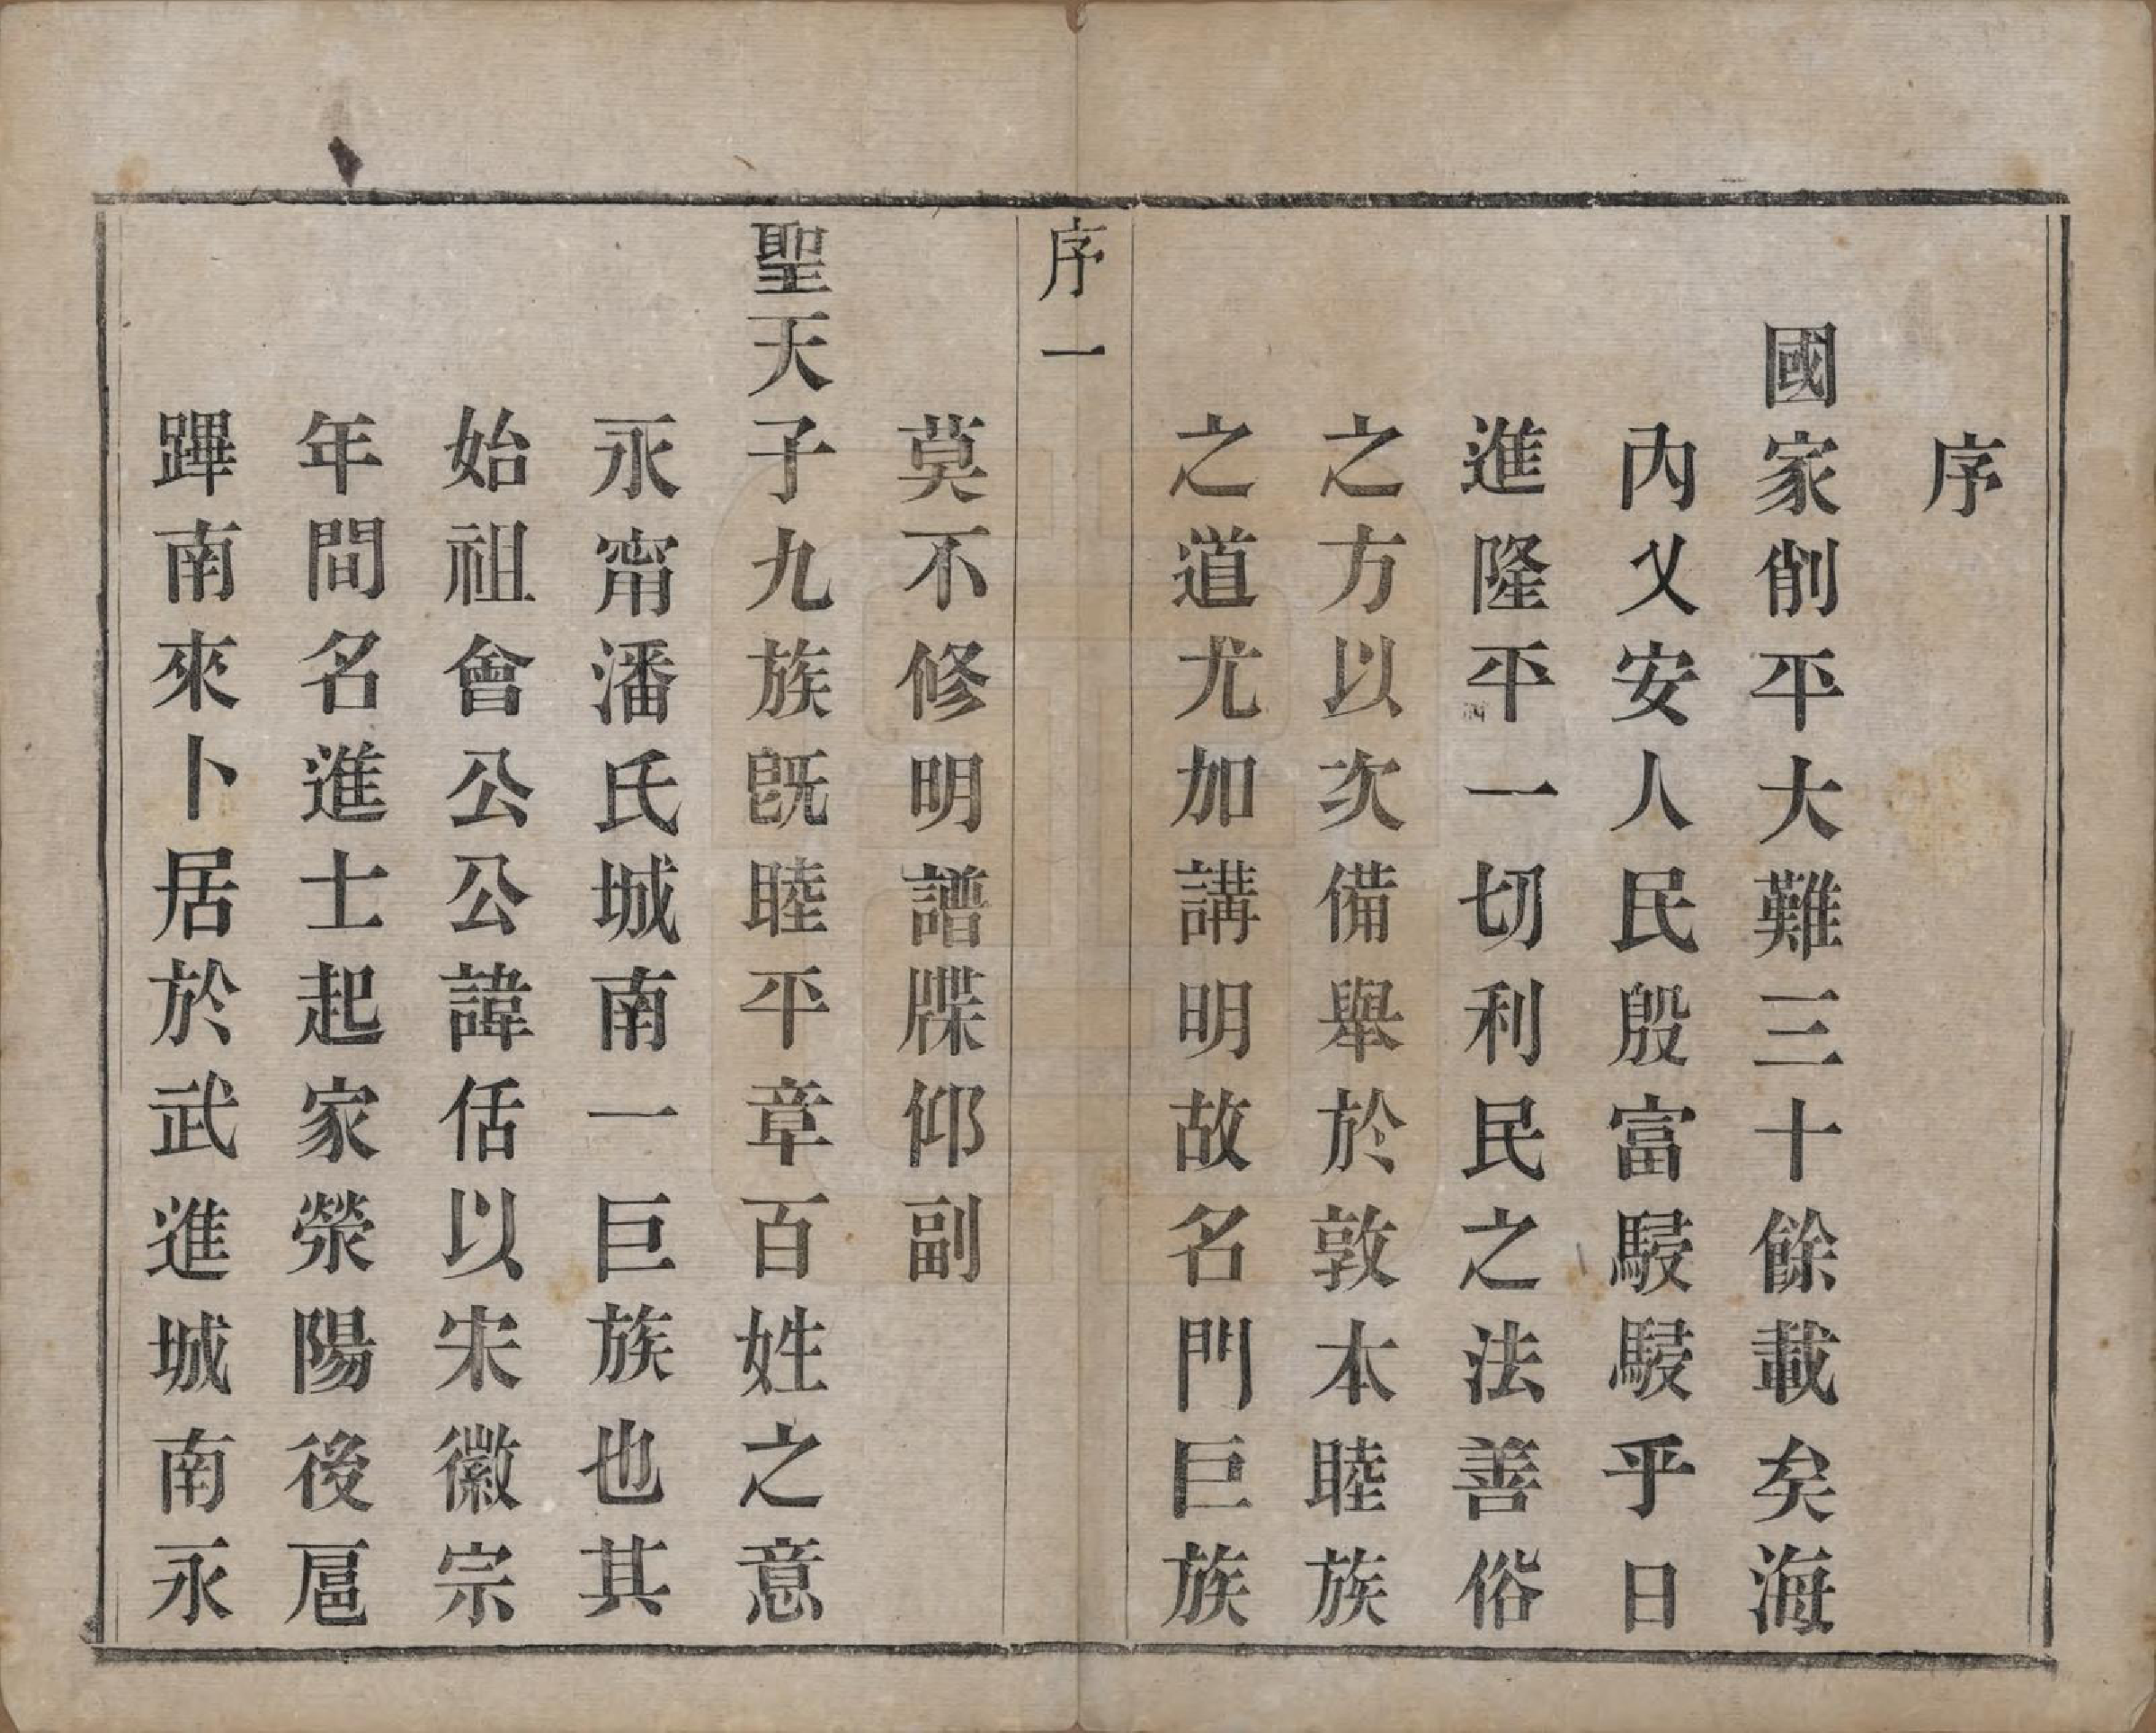 序
國家削平大難三十餘載矣海
內乂安人民殷富駸駸乎日
進隆平一切利民之法善俗
之方以次備舉於敦本睦族
之道尤加講明故名門巨族
序一
莫不修明譜牒仰副
聖天子九族既睦平章百姓之意
永甯潘氏城南一巨族也其
始祖會公公諱佸以宋徽宗
年間名進士起家滎陽後扈
蹕南來卜居於武進城南永